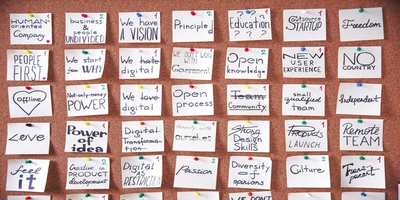 HUMAN-
ORIENTED
Company
business &
people
UNDIVIDED
We have
A VISION
Principle
Education
???
Outsource
STARTUP
Freedom
PEOPLE
FIRST
We start
from WHY
We hate
digital
We don't work
with
Government
Open
knowledge
NEW
USER
EXPERIENCE
NO
COUNTRY
Offline
Not-only-money
POWER
We love
digital
Open
process
Team
Community
small
qualified
team
Independent
Love
Power of
idea
Digital
Transforma-
tion
ourselves
Strong
Design
Skills
LAUNCH
Remote
TEAM
Feel
it
Creative
PRODUCT
development
Digital
Passion
Diversity
of
opinions
Culture
Transparent
WE DON'T